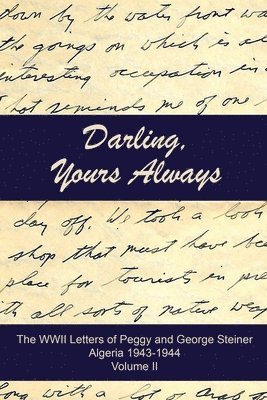 down by the water front wa
the goings on which is al
interesting occupation in
that reminds me of one
Darling,
Yours Always
day off. We took a look
shop that must have be
place for tourists in pre
with all sorts of native wea
The WWII Letters of Peggy and George Steiner
Algeria 1943-1944
Volume II
long with a lot of Arab